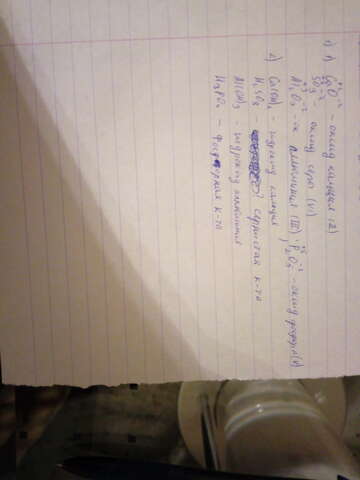 1) 1) CaO - оксид кальция (2)
+2 -2
SO₃ - оксид серы (VI)
+6 -2
Al₂O₃ - ок. аллюминия (III); P₂O₅ - оксид фосфора (V)
+3 -2 +5 -2
2) Ca(OH)₂ - гидроксид кальция
H₂SO₃ - сернистая к-та
Al(OH)₃ - гидроксид аллюминия
H₃PO₄ - Фосфорная к-та